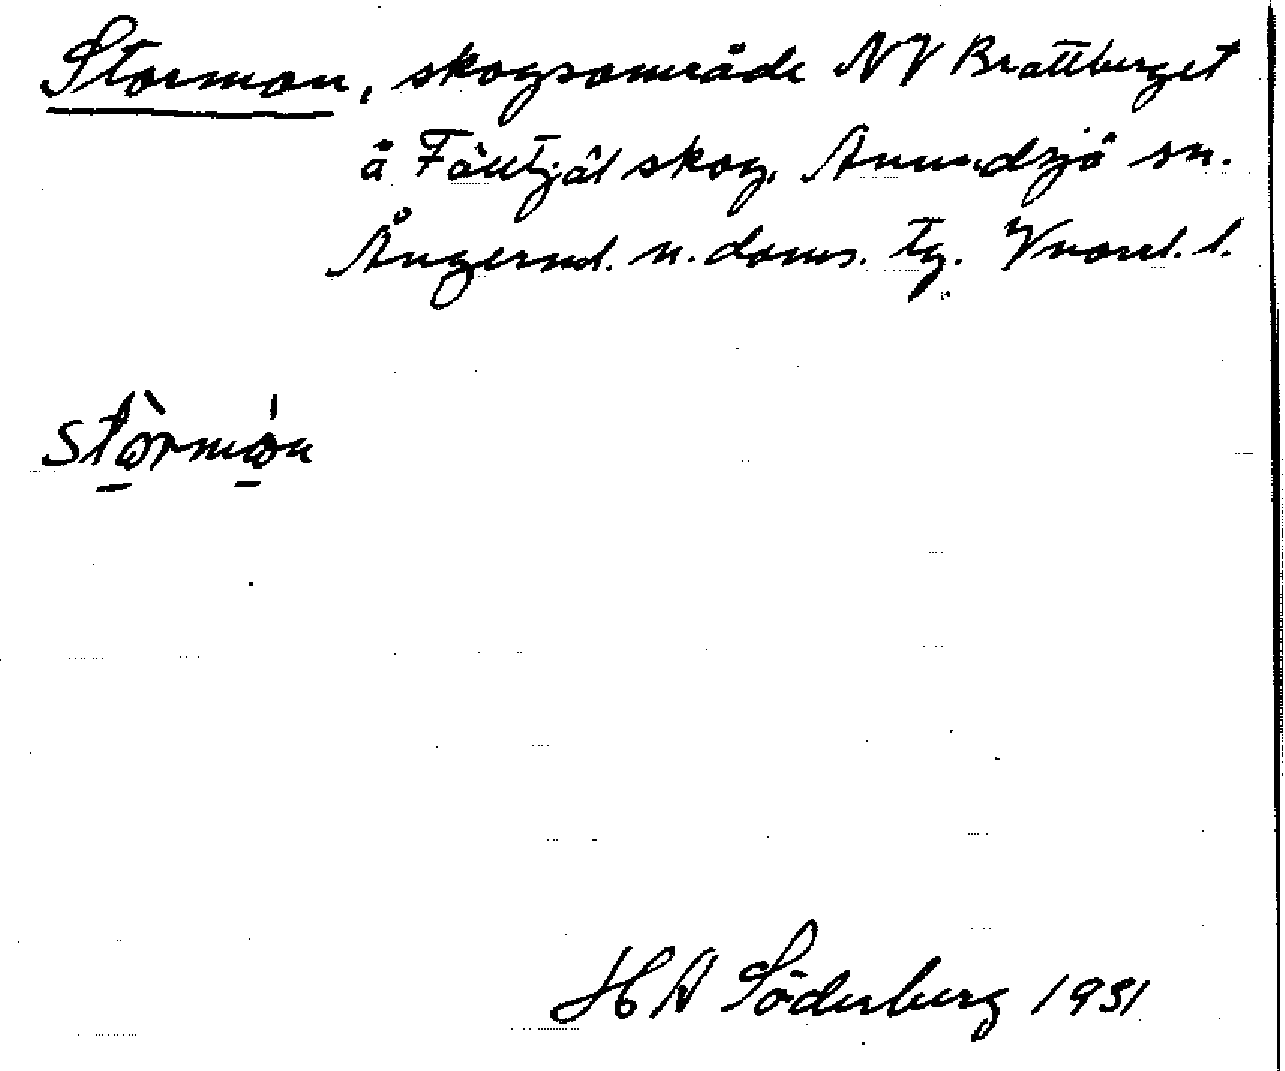 Stormon, skogsområde NV Brattberget
å Fälltjäl skog, Anundsjö sn.
Ångerml. n. doms. tg. Vnorrl. l.
stòrmo̠n
H A Söderberg 1931